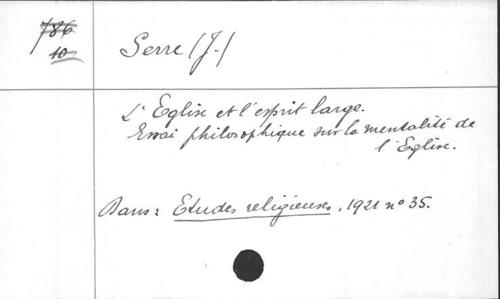 786
10
Serre (J.)
L'Eglise et l'esprit large.
Essai philosophique sur la mentalité de
l'Eglise.
Dans: Etudes religieuses, 1921 n° 35.